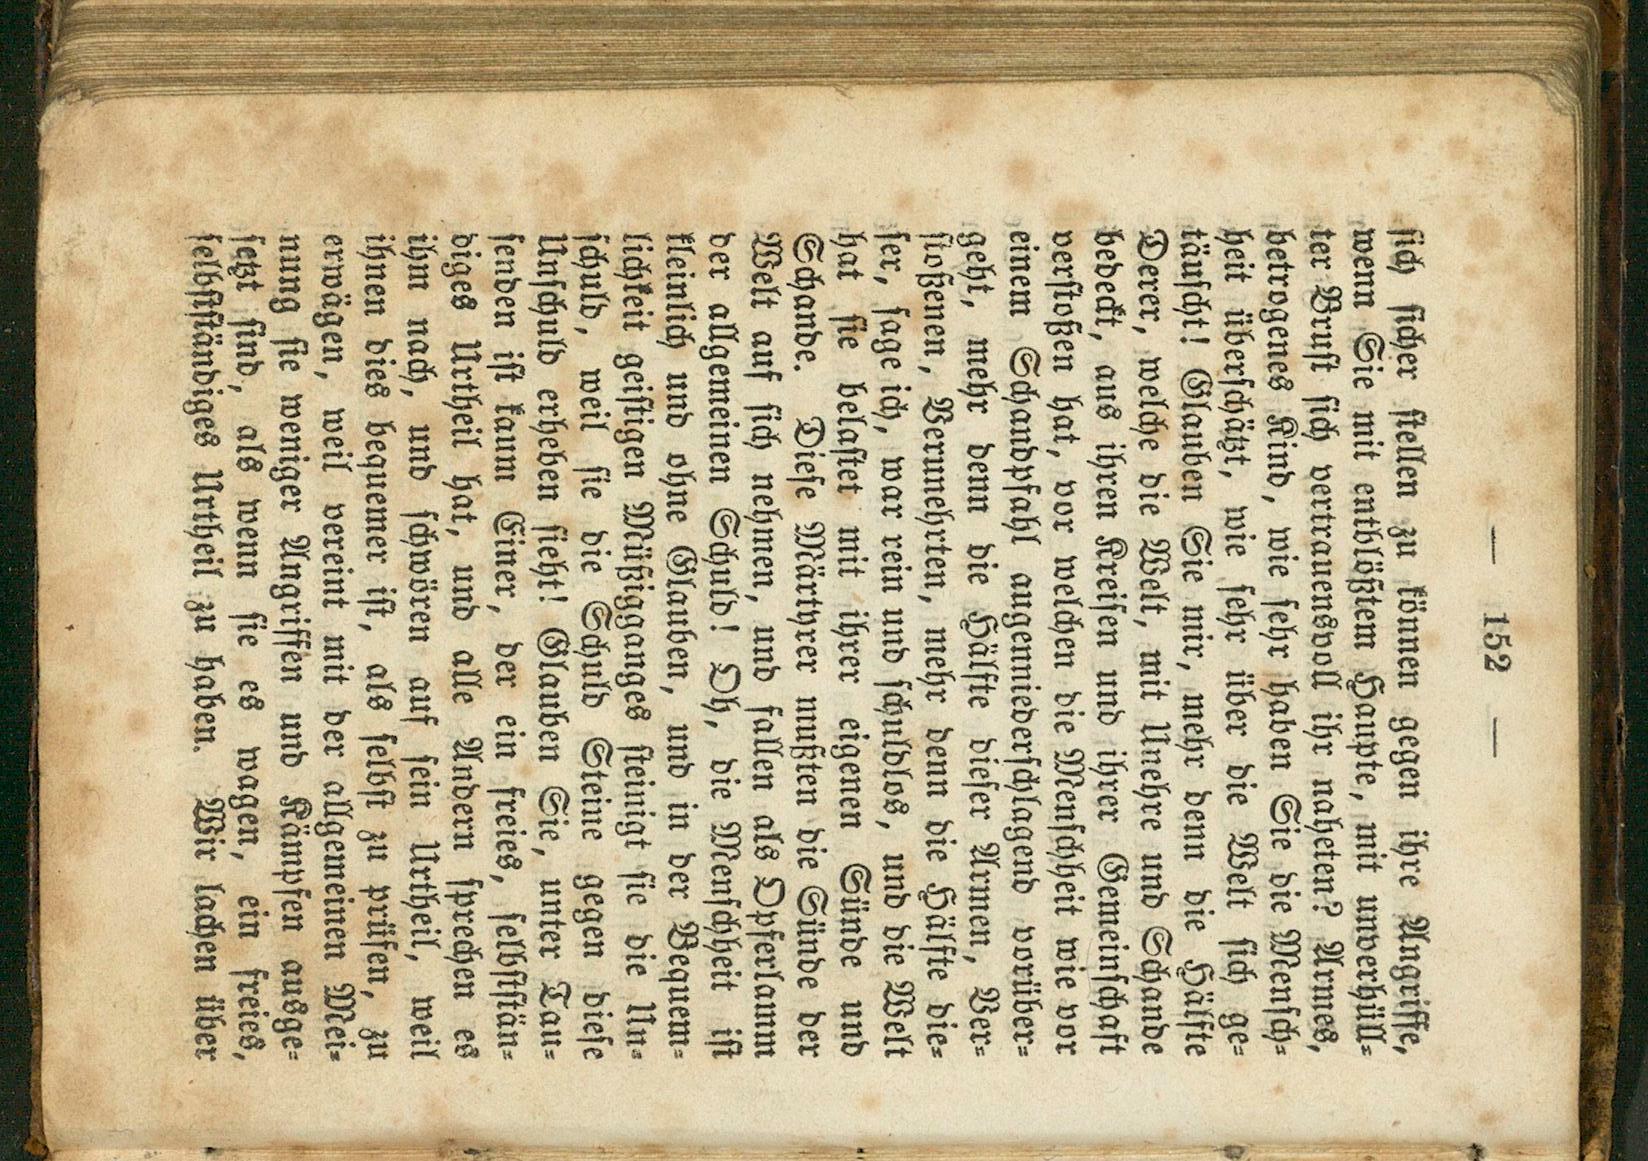 — 152 —
sich sicher stellen zu können gegen ihre Angriffe,
wenn Sie mit entblößtem Haupte, mit unverhüll-
ter Brust sich vertrauensvoll ihr naheten? Armes,
betrogenes Kind, wie sehr haben Sie die Mensch-
heit überschätzt, wie sehr über die Welt sich ge-
täuscht! Glauben Sie mir, mehr denn die Hälfte
Derer, welche die Welt, mit Unehre und Schande
bedeckt, aus ihren Kreisen und ihrer Gemeinschaft
verstoßen hat, vor welchen die Menschheit wie vor
einem Schandpfahl augenniederschlagend vorüber-
geht, mehr denn die Hälfte dieser Armen, Ver-
stoßenen, Verunehrten, mehr denn die Hälfte die-
ser, sage ich, war rein und schuldlos, und die Welt
hat sie belastet mit ihrer eigenen Sünde und
Schande. Diese Märtyrer mußten die Sünde der
Welt auf sich nehmen, und fallen als Opferlamm
der allgemeinen Schuld! Oh, die Menschheit ist
kleinlich und ohne Glauben, und in der Bequem-
lichkeit geistigen Müßigganges steinigt sie die Un-
schuld, weil sie die Schuld Steine gegen diese
Unschuld erheben sieht! Glauben Sie, unter Tau-
senden ist kaum Einer, der ein freies, selbststän-
diges Urtheil hat, und alle Andern sprechen es
ihm nach, und schwören auf sein Urtheil, weil
ihnen dies bequemer ist, als selbst zu prüfen, zu
erwägen, weil vereint mit der allgemeinen Mei-
nung sie weniger Angriffen und Kämpfen ausge-
setzt sind, als wenn sie es wagen, ein freies,
selbstständiges Urtheil zu haben. Wir lachen über